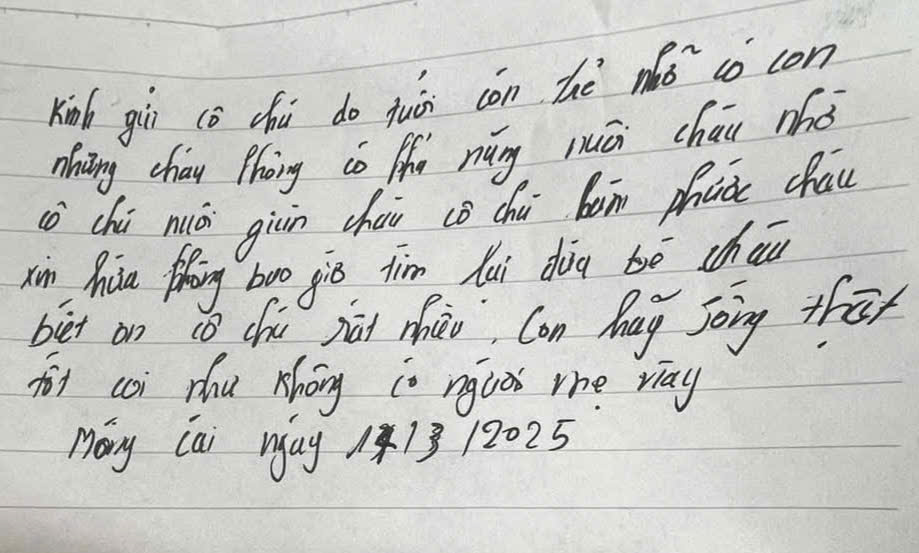 Kính gửi cô chú do tuổi còn trẻ nhỡ có con
nhưng cháu không có khả năng nuôi cháu nhờ
cô chú nuôi giùm cháu cô chú làm phước cháu
xin hứa không bao giờ tìm lại đứa bé cháu
biết ơn cô chú rất nhiều. Con hãy sống thật
tốt coi như không có người mẹ này
Móng Cái ngày 14/3/2025